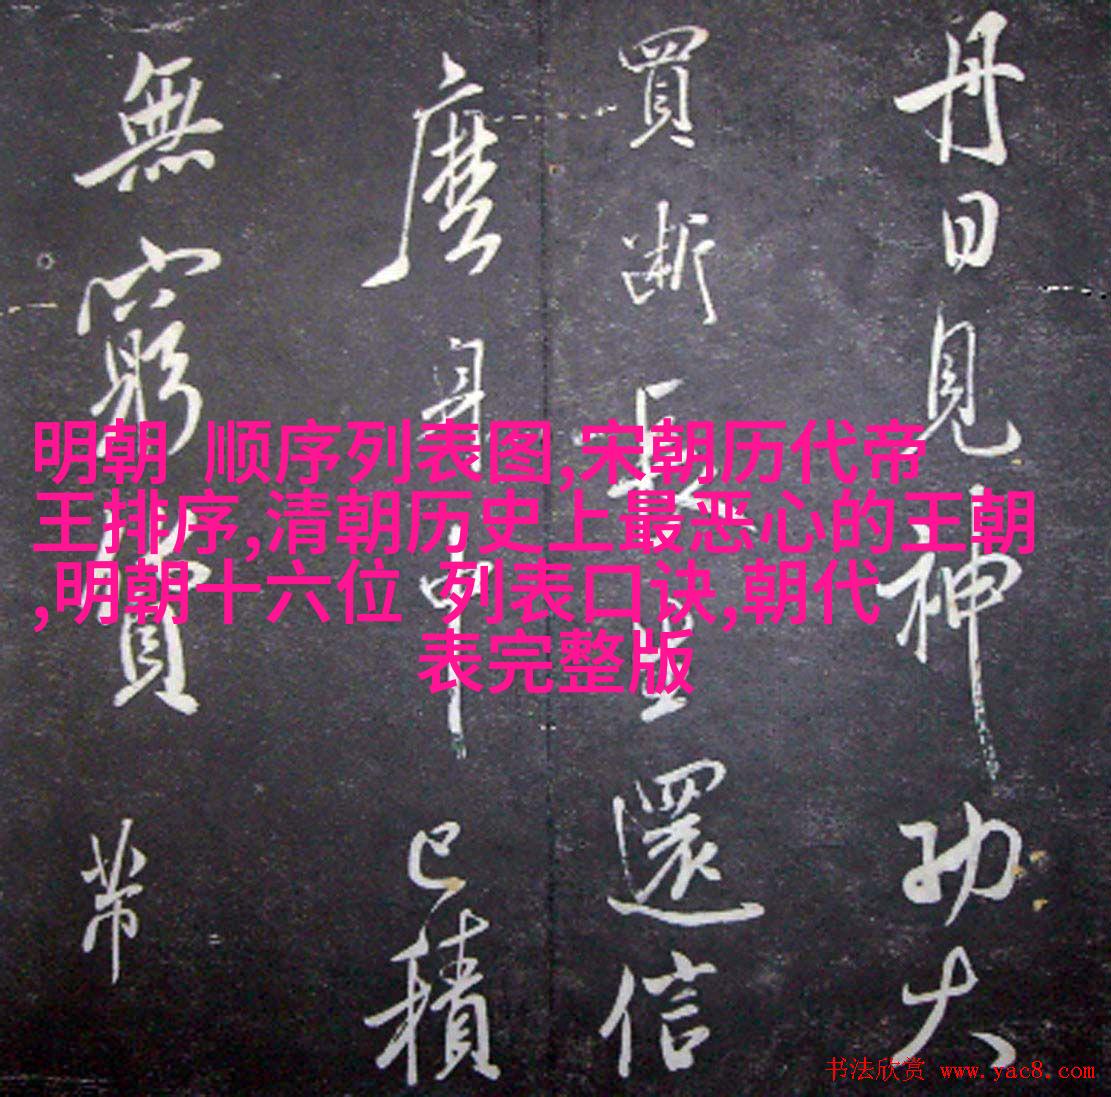 丹日見神功大
買斷長生還信
塵身中已積
無窮貲 帶
明朝 顺序列表图,宋朝历代帝
王排序,清朝历史上最恶心的王朝
,明朝十六位 列表口诀,朝代
表完整版
书法欣赏 www.yac8.com